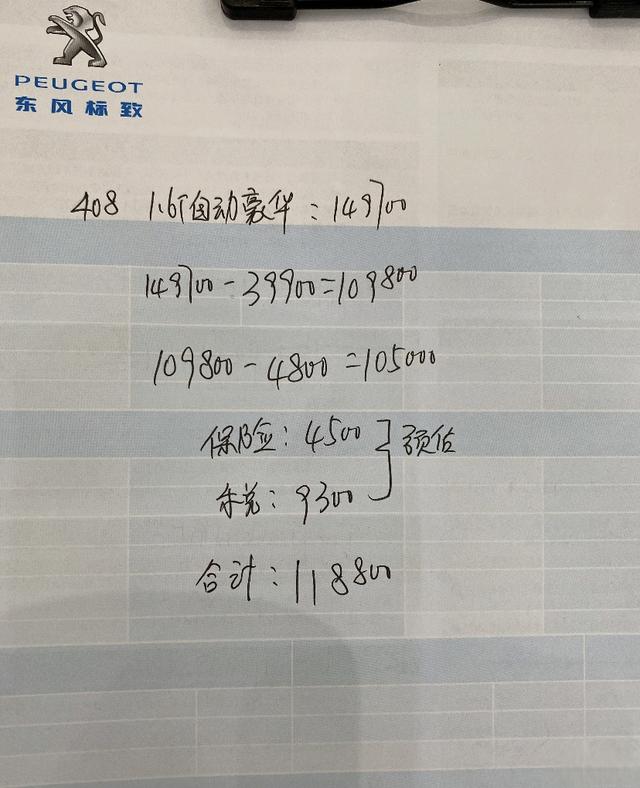 PEUGEOT
东风标致
408 1.6T自动豪华：149700
149700-39900=109800
109800-4800=105000
保险：4500 预估
税：9300
合计：118800